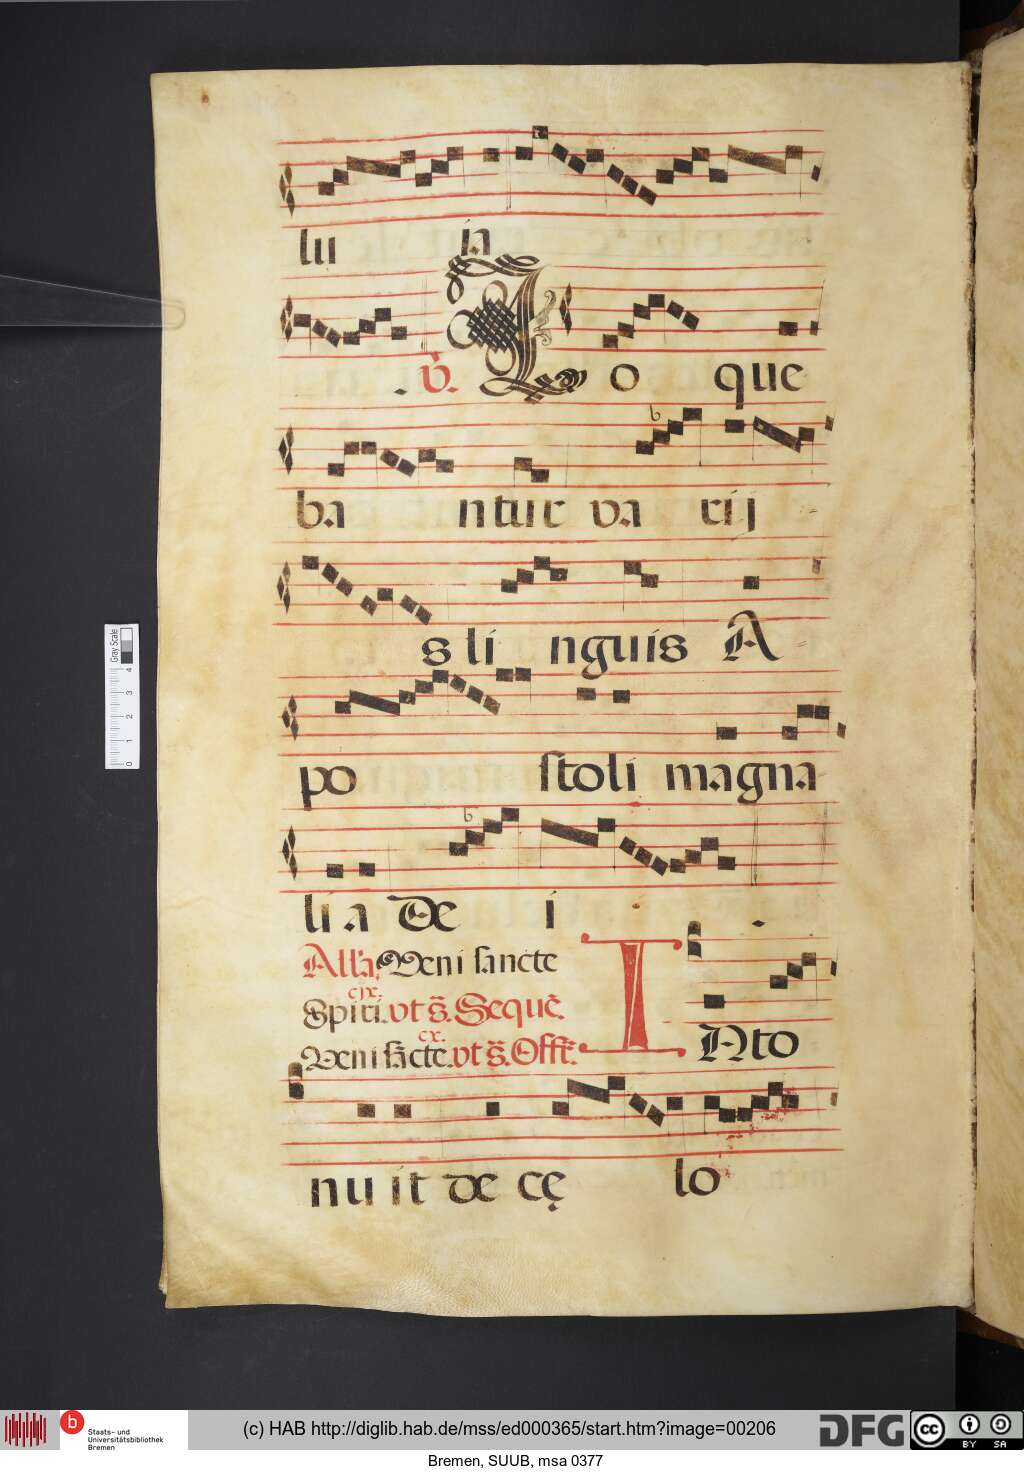 lu ia
℣. Lo que
ba ntur va rij
s li nguis A
po stoli magna
li a De i
All'a. Veni sancte
cix.
Spiri. vt s̄. Sequē.
cx.
Veni sācte. vt s̄. Offr̄.
INto
nu it de cę lo
Gray Scale
0 1 2 3 4
b Staats- und
Universitätsbibliothek
Bremen
(c) HAB http://diglib.hab.de/mss/ed000365/start.htm?image=00206
DFG
cc BY SA
Bremen, SUUB, msa 0377